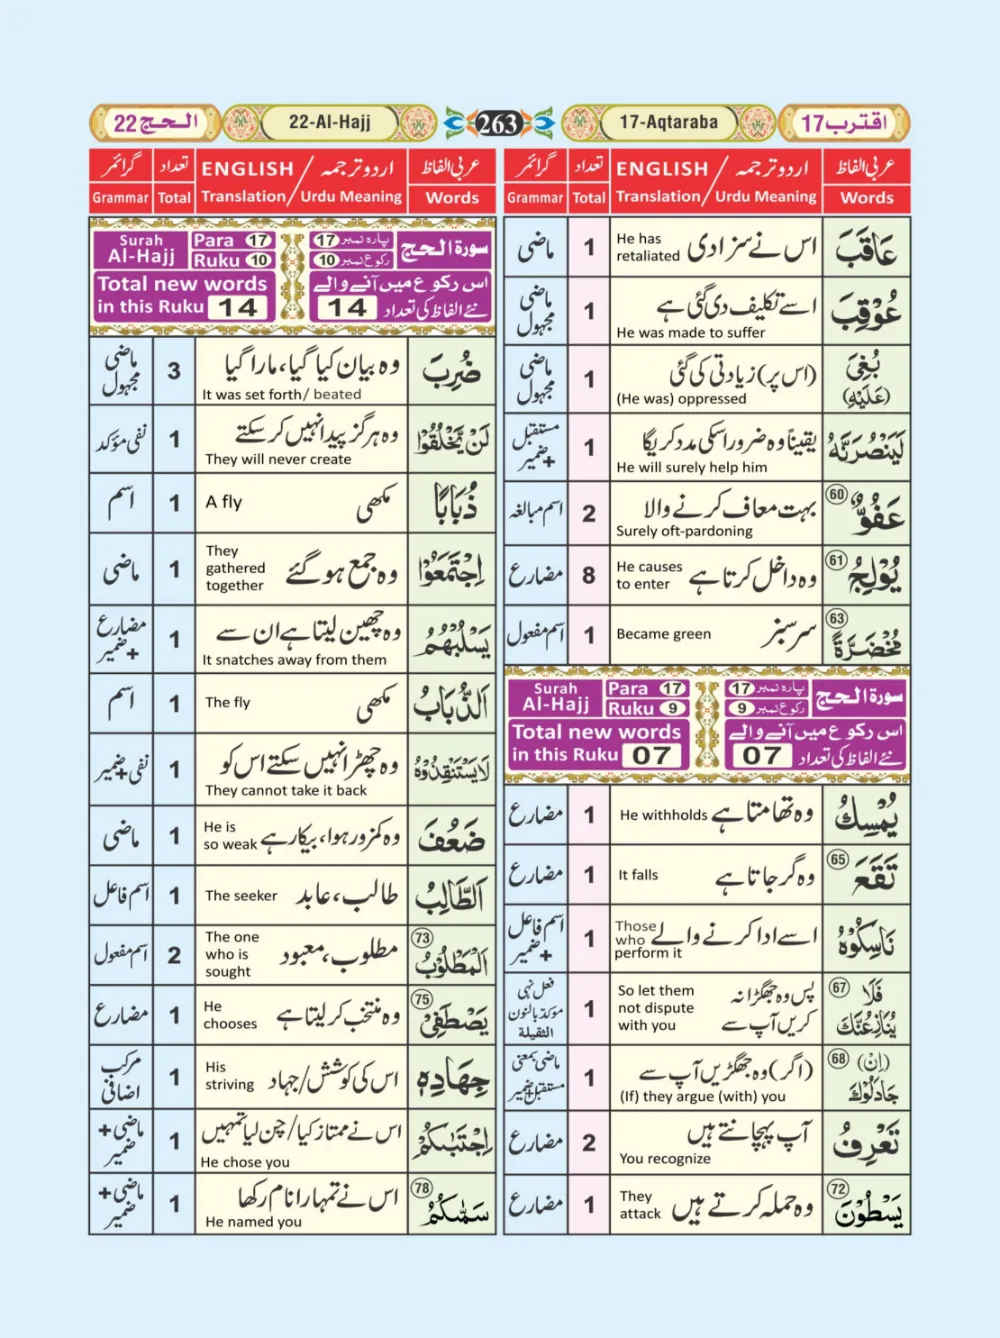 اقترب 17
17-Aqtaraba
263
22-Al-Hajj
الحج 22
عربی الفاظ اردو ترجمہ / ENGLISH تعداد گرائمر
Words Urdu Meaning / Translation Total Grammar
عَاقَبَ اس نے سزا دی He has retaliated 1 ماضی
عُوْقِبَ اسے تکلیف دی گئی ہے He was made to suffer 1 ماضی مجہول
بُغِیَ (عَلَیْهِ) (اس پر) زیادتی کی گئی (He was) oppressed 1 ماضی مجہول
لَیَنْصُرَنَّهُ یقیناً وہ ضرور اسکی مدد کریگا He will surely help him 1 مستقبل + ضمیر
عَفُوٌّ 60 بہت معاف کرنے والا Surely oft-pardoning 2 اسم مبالغہ
یُوْلِجُ 61 وہ داخل کرتا ہے He causes to enter 8 مضارع
مُخْضَرَّةً 63 سرسبز Became green 1 اسم مفعول
سورۃ الحج پارہ نمبر 17 رکوع نمبر 9
Surah Al-Hajj Para 17 Ruku 9
اس رکوع میں آنے والے نئے الفاظ کی تعداد 07
Total new words in this Ruku 07
یُمْسِكُ وہ تھامتا ہے He withholds 1 مضارع
تَقَعَ 65 وہ گر جاتا ہے It falls 1 مضارع
نَاسِكُوْهُ اسے ادا کرنے والے Those who perform it 1 اسم فاعل + ضمیر
فَلَا یُنَازِعُنَّكَ 67 پس وہ جھگڑا نہ کریں آپ سے So let them not dispute with you 1 فعل نہی مؤکد بالنون الثقیلة
(اِنْ) جَادَلُوْكَ 68 (اگر) وہ جھگڑیں آپ سے (If) they argue (with) you 1 ماضی بمعنی مستقبل + ضمیر
تَعْرِفُ آپ پہچانتے ہیں You recognize 2 مضارع
یَسْطُوْنَ 72 وہ حملہ کرتے ہیں They attack 1 مضارع
عربی الفاظ اردو ترجمہ / ENGLISH تعداد گرائمر
Words Urdu Meaning / Translation Total Grammar
سورۃ الحج پارہ نمبر 17 رکوع نمبر 10
Surah Al-Hajj Para 17 Ruku 10
اس رکوع میں آنے والے نئے الفاظ کی تعداد 14
Total new words in this Ruku 14
ضُرِبَ وہ بیان کیا گیا، مارا گیا It was set forth/ beated 3 ماضی مجہول
لَنْ یَّخْلُقُوْا وہ ہرگز پیدا نہیں کر سکتے They will never create 1 نفی مؤکد
ذُبَابًا مکھی A fly 1 اسم
اِجْتَمَعُوْا وہ جمع ہو گئے They gathered together 1 ماضی
یَسْلُبْهُمُ وہ چھین لیتا ہے ان سے It snatches away from them 1 مضارع + ضمیر
اَلذُّبَابُ مکھی The fly 1 اسم
لَا یَسْتَنْقِذُوْهُ وہ چھڑا نہیں سکتے اس کو They cannot take it back 1 نفی + ضمیر
ضَعُفَ وہ کمزور ہوا، بیکار ہے He is so weak 1 ماضی
اَلطَّالِبُ طالب، عابد The seeker 1 اسم فاعل
اَلْمَطْلُوْبُ 73 مطلوب، معبود The one who is sought 2 اسم مفعول
یَصْطَفِیْ 75 وہ منتخب کر لیتا ہے He chooses 1 مضارع
جِهَادِهٖ اس کی کوشش/جہاد His striving 1 مرکب اضافی
اِجْتَبٰىكُمْ اس نے ممتاز کیا/چن لیا تمہیں He chose you 1 ماضی + ضمیر
سَمّٰىكُمُ 78 اس نے تمہارا نام رکھا He named you 1 ماضی + ضمیر